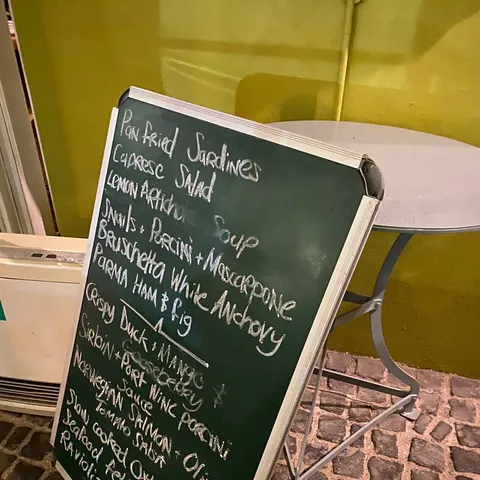 Pan fried Sardines
Caprese Salad
Lemon Artichok Soup
Snails + Porcini + Mascarpone
Bruschetta White Anchovy
Parma Ham & Fig
Crispy Duck + Mango &
Gooseberry
Sirloin + Port Wine Porcini
Sauce
Norwegian Salmon +
Tomato Salsa
Slow cooked
Seafood
Ravioli